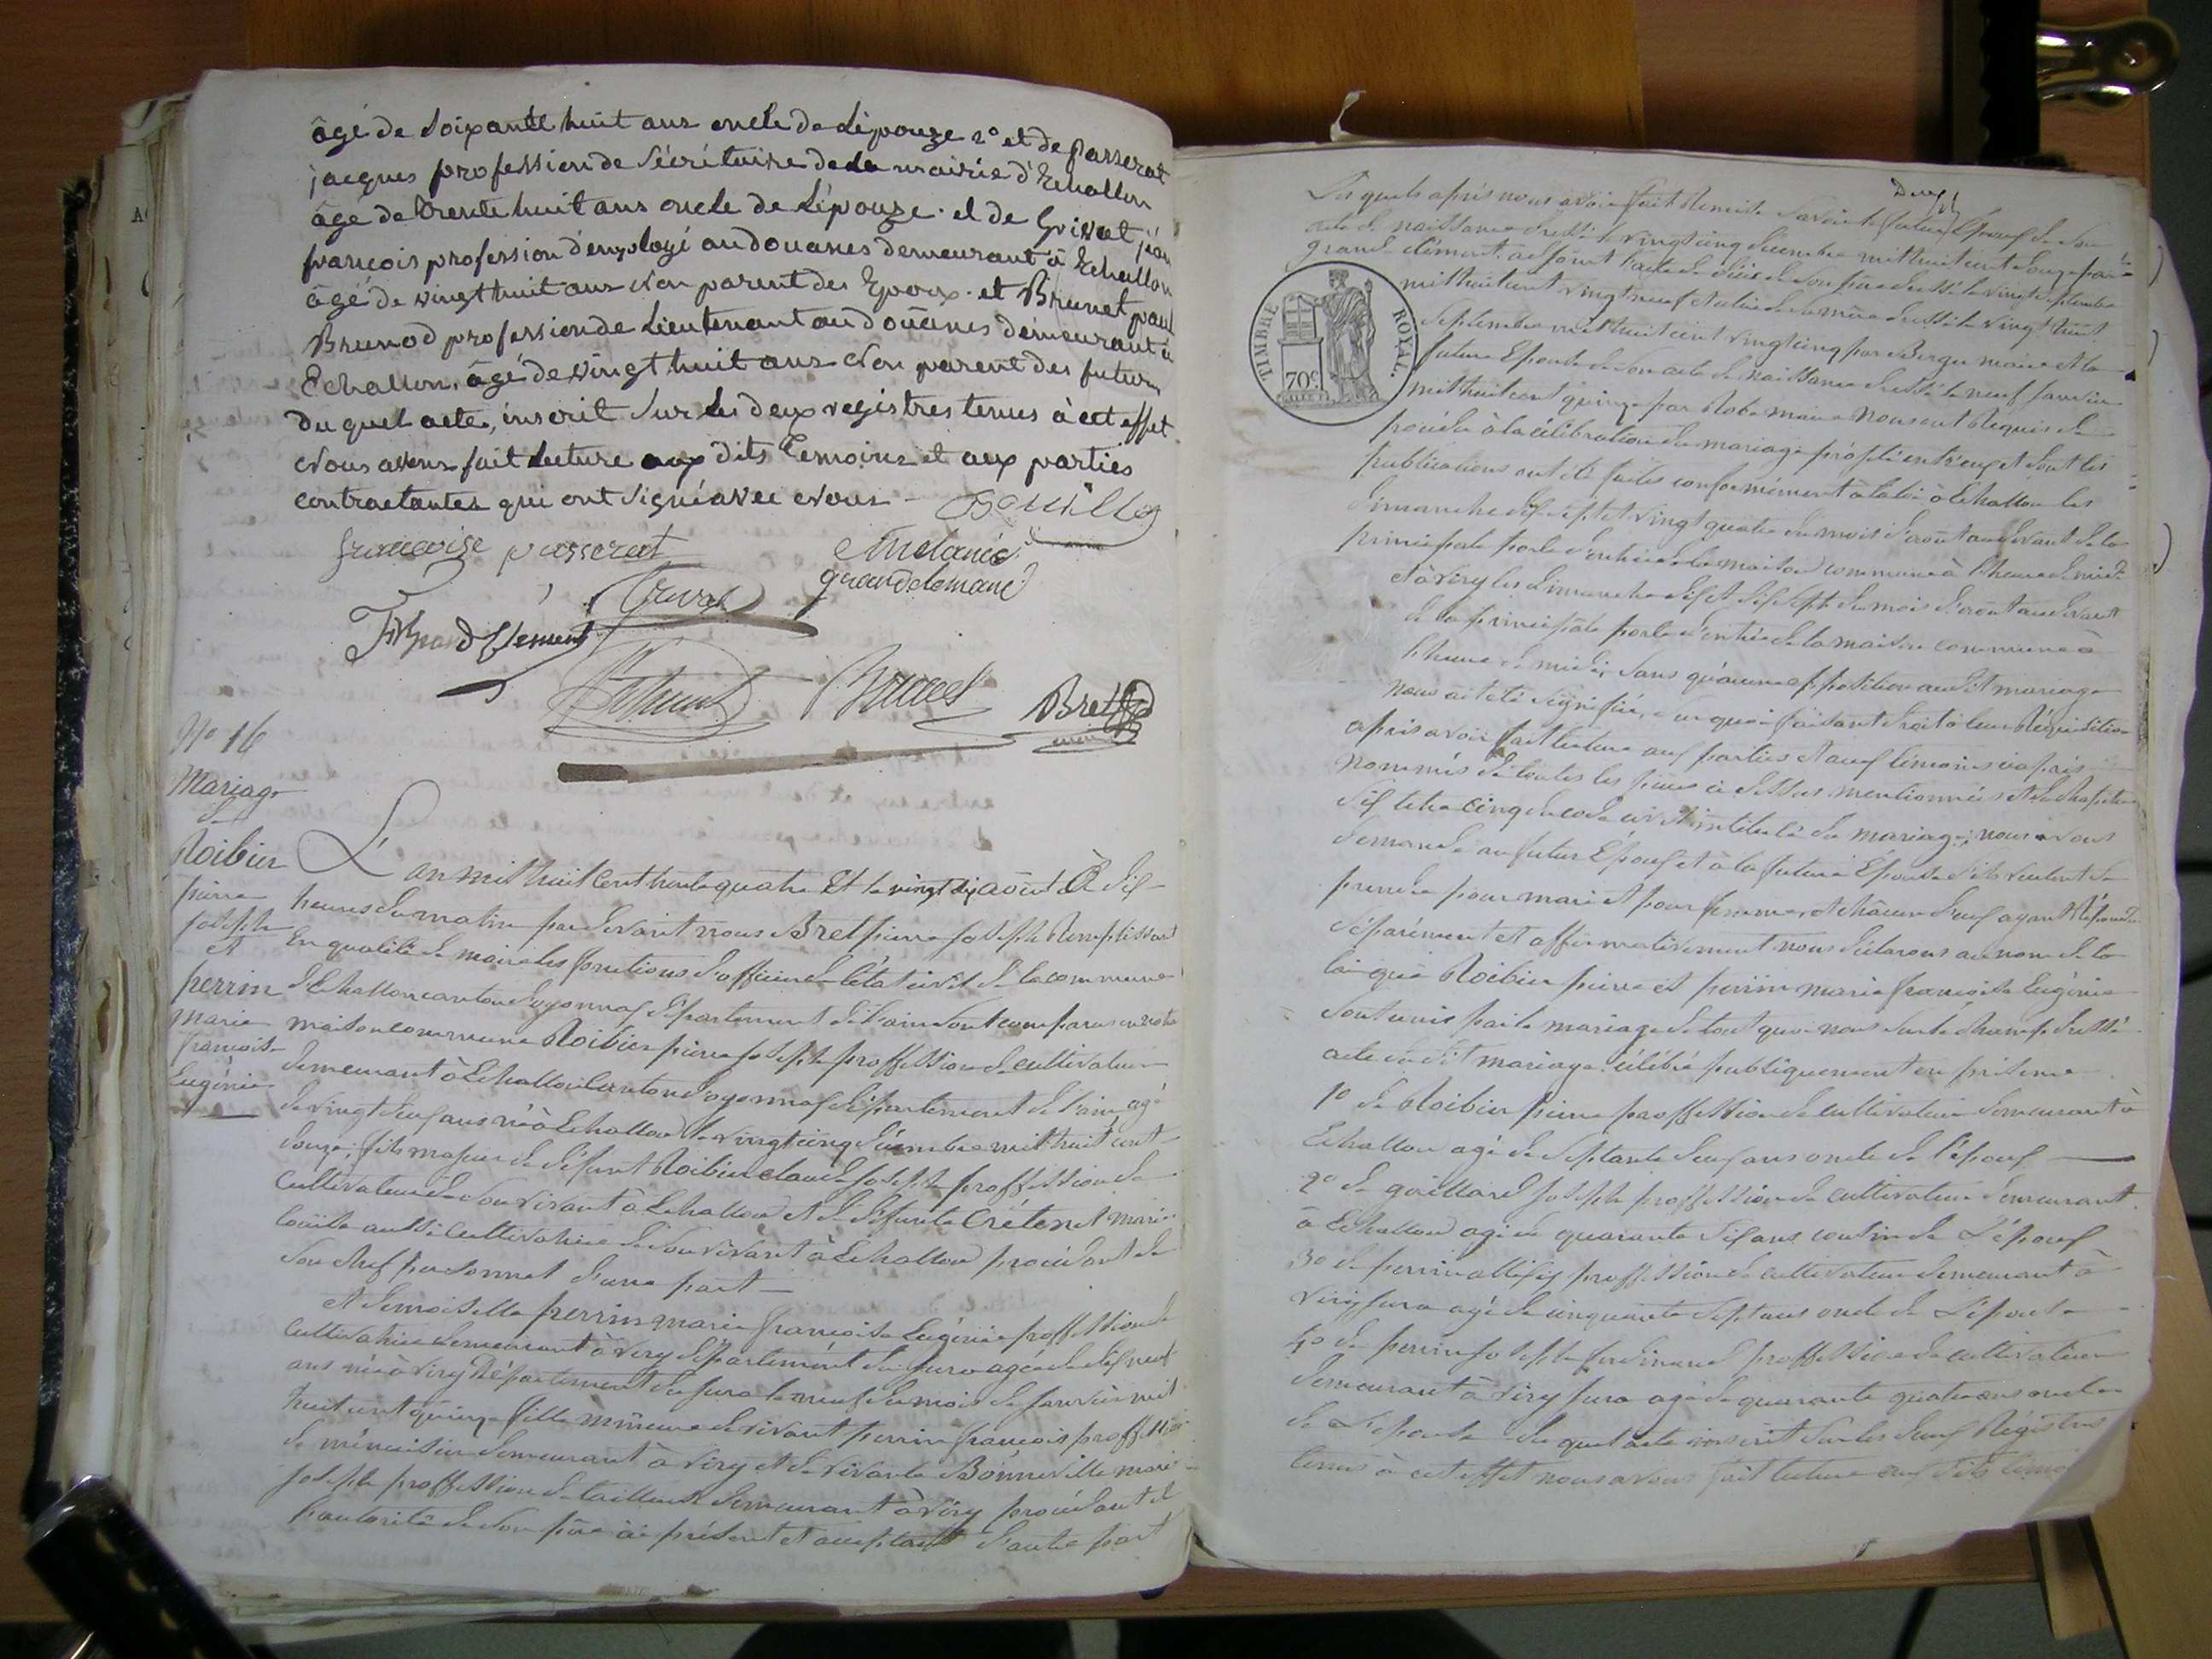 âgé de Soixante huit ans oncle de Lépouze 2° et de passerat
jacques profession de Sécrétaire de la mairie d'Echallon
âgé de trente huit ans oncle de Lépouze. et de Grivat jean
françois profession d'employé au douanes demeurant à Echallon
âgé de vingt huit ans Non parent des Epoux. et Brunet paul
Brunod profession de Lieutenant au douanes demeurant à
Echallon, âgé de vingt huit ans Non parent des futurs
du quel acte, inscrit Sur les deux registres tenus à cet effet
Nous avons fait Lecture aux dits temoins et aux parties
contractantes qui ont Signé avec Nous
françoise passerat
Melanie
grandclemant
Grivat
grand Clement
Brunet
Bret
N° 16
Mariage
de
Roibier
pierre
joseph
et
perrin
marie
françoise
Eugénie
L'an mil huit Cent trente quatre Et le vingt six août à dix
heures du matin par devant nous Bret pierre joseph Remplissant
En qualité de maire les fonctions d'officier de l'état civil de la commune
d'Echallon canton d'oyonnax département de l'ain Sont comparus en notre
maison commune Roibier pierre joseph proffession de cultivateur
demeurant à Echallon Canton d'oyonnax département de l'ain agé
de vingt deux ans né à Echallon le vingt cinq décembre mil huit cent
douze, fils majeur de défunt Roibier claude joseph proffession de
Cultivateur de Son vivant à Echallon et de défunte Crétenet marie
Louise aussi Cultivatrice de Son vivant à Echallon procédant de
Son chef personnel d'une part
et demoiselle perrin marie françoise Eugénie proffession de
Cultivatrice demeurant à viry département du jura agée de dix neuf
ans née à viry Département du jura le neuf du mois de janvier mil
huit cent quinze fille mineure de vivant perrin françois proffession
de ménuisier demeurant à viry et de vivante Bonneville marie
joseph proffession de tailleuse demeurant à viry procédant de
l'autorité de Son père ici présent et acceptant d'autre part
Deux
Les quels après nous avoir fait Remise Savoir le futur Epoux de Son
acte de naissance dressé le vingt cinq décembre mil huit cent douze par
grand-clément adjoint l'acte de décès de Son père dressé le vingt Septembre
mil huit cent vingt neuf et celui de Sa mère dressé le vingt huit
Septembre mil huit cent vingt cinq par maire et la
future Epouse de Son acte de naissance dressé le neuf janvier
mil huit cent quinze par Robe maire Nous ont Requis de
procéder à la célébration du mariage projeté entr'eux et dont les
publications ont été faites conformément à la loi à Echallon les
dimanche dix Sept et vingt quatre du mois d'août au devant de la
principale porte d'entrée de la maison commune à l'heure de midi
et à viry les dimanche dix et dix Sept du mois d'août au devant
de la principale porte d'entrée de la maison commune à
l'heure de midi, Sans qu'aucune opposition audit mariage
nous ait été Signifiée, Sur quoi faisant droit à leur Réquisition
après avoir fait lecture aux parties et aux témoins ci après
nommés de toutes les pièces ci dessus mentionnées et du chapitre
Six titre Cinq du code civil intitulé du mariage, nous avons
demandé au futur Epoux et à la future Epouse S'ils veulent Se
prendre pour mari et pour femme, et châcun d'eux ayant Répondu
Séparément et affirmativement nous déclarons au nom de la
loi que Roibier pierre et perrin marie françoise Eugénie
Sont unis par le mariage de tout quoi nous Sur le champ dressé
acte du dit mariage célébré publiquement en présence
1° de Roibier pierre proffession de cultivateur demeurant à
Echallon agé de Septante deux ans oncle de l'époux
2° de gaillard joseph proffession de cultivateur demeurant
à Echallon agé de quarante Six ans cousin de L'époux
3° de perrin allexis proffession de cultivateur demeurant à
viry jura agé de cinquante Sept ans oncle de L'épouse
4° de perrin joseph ferdinand proffession de cultivateur
demeurant à viry jura agé de quarante quatre ans oncle
de L'épouse du quel acte inscrit Sur les deux Régistres
tenus à cet effet nous avons fait lecture aux dits témoi
TIMBRE ROYAL.
70 c.